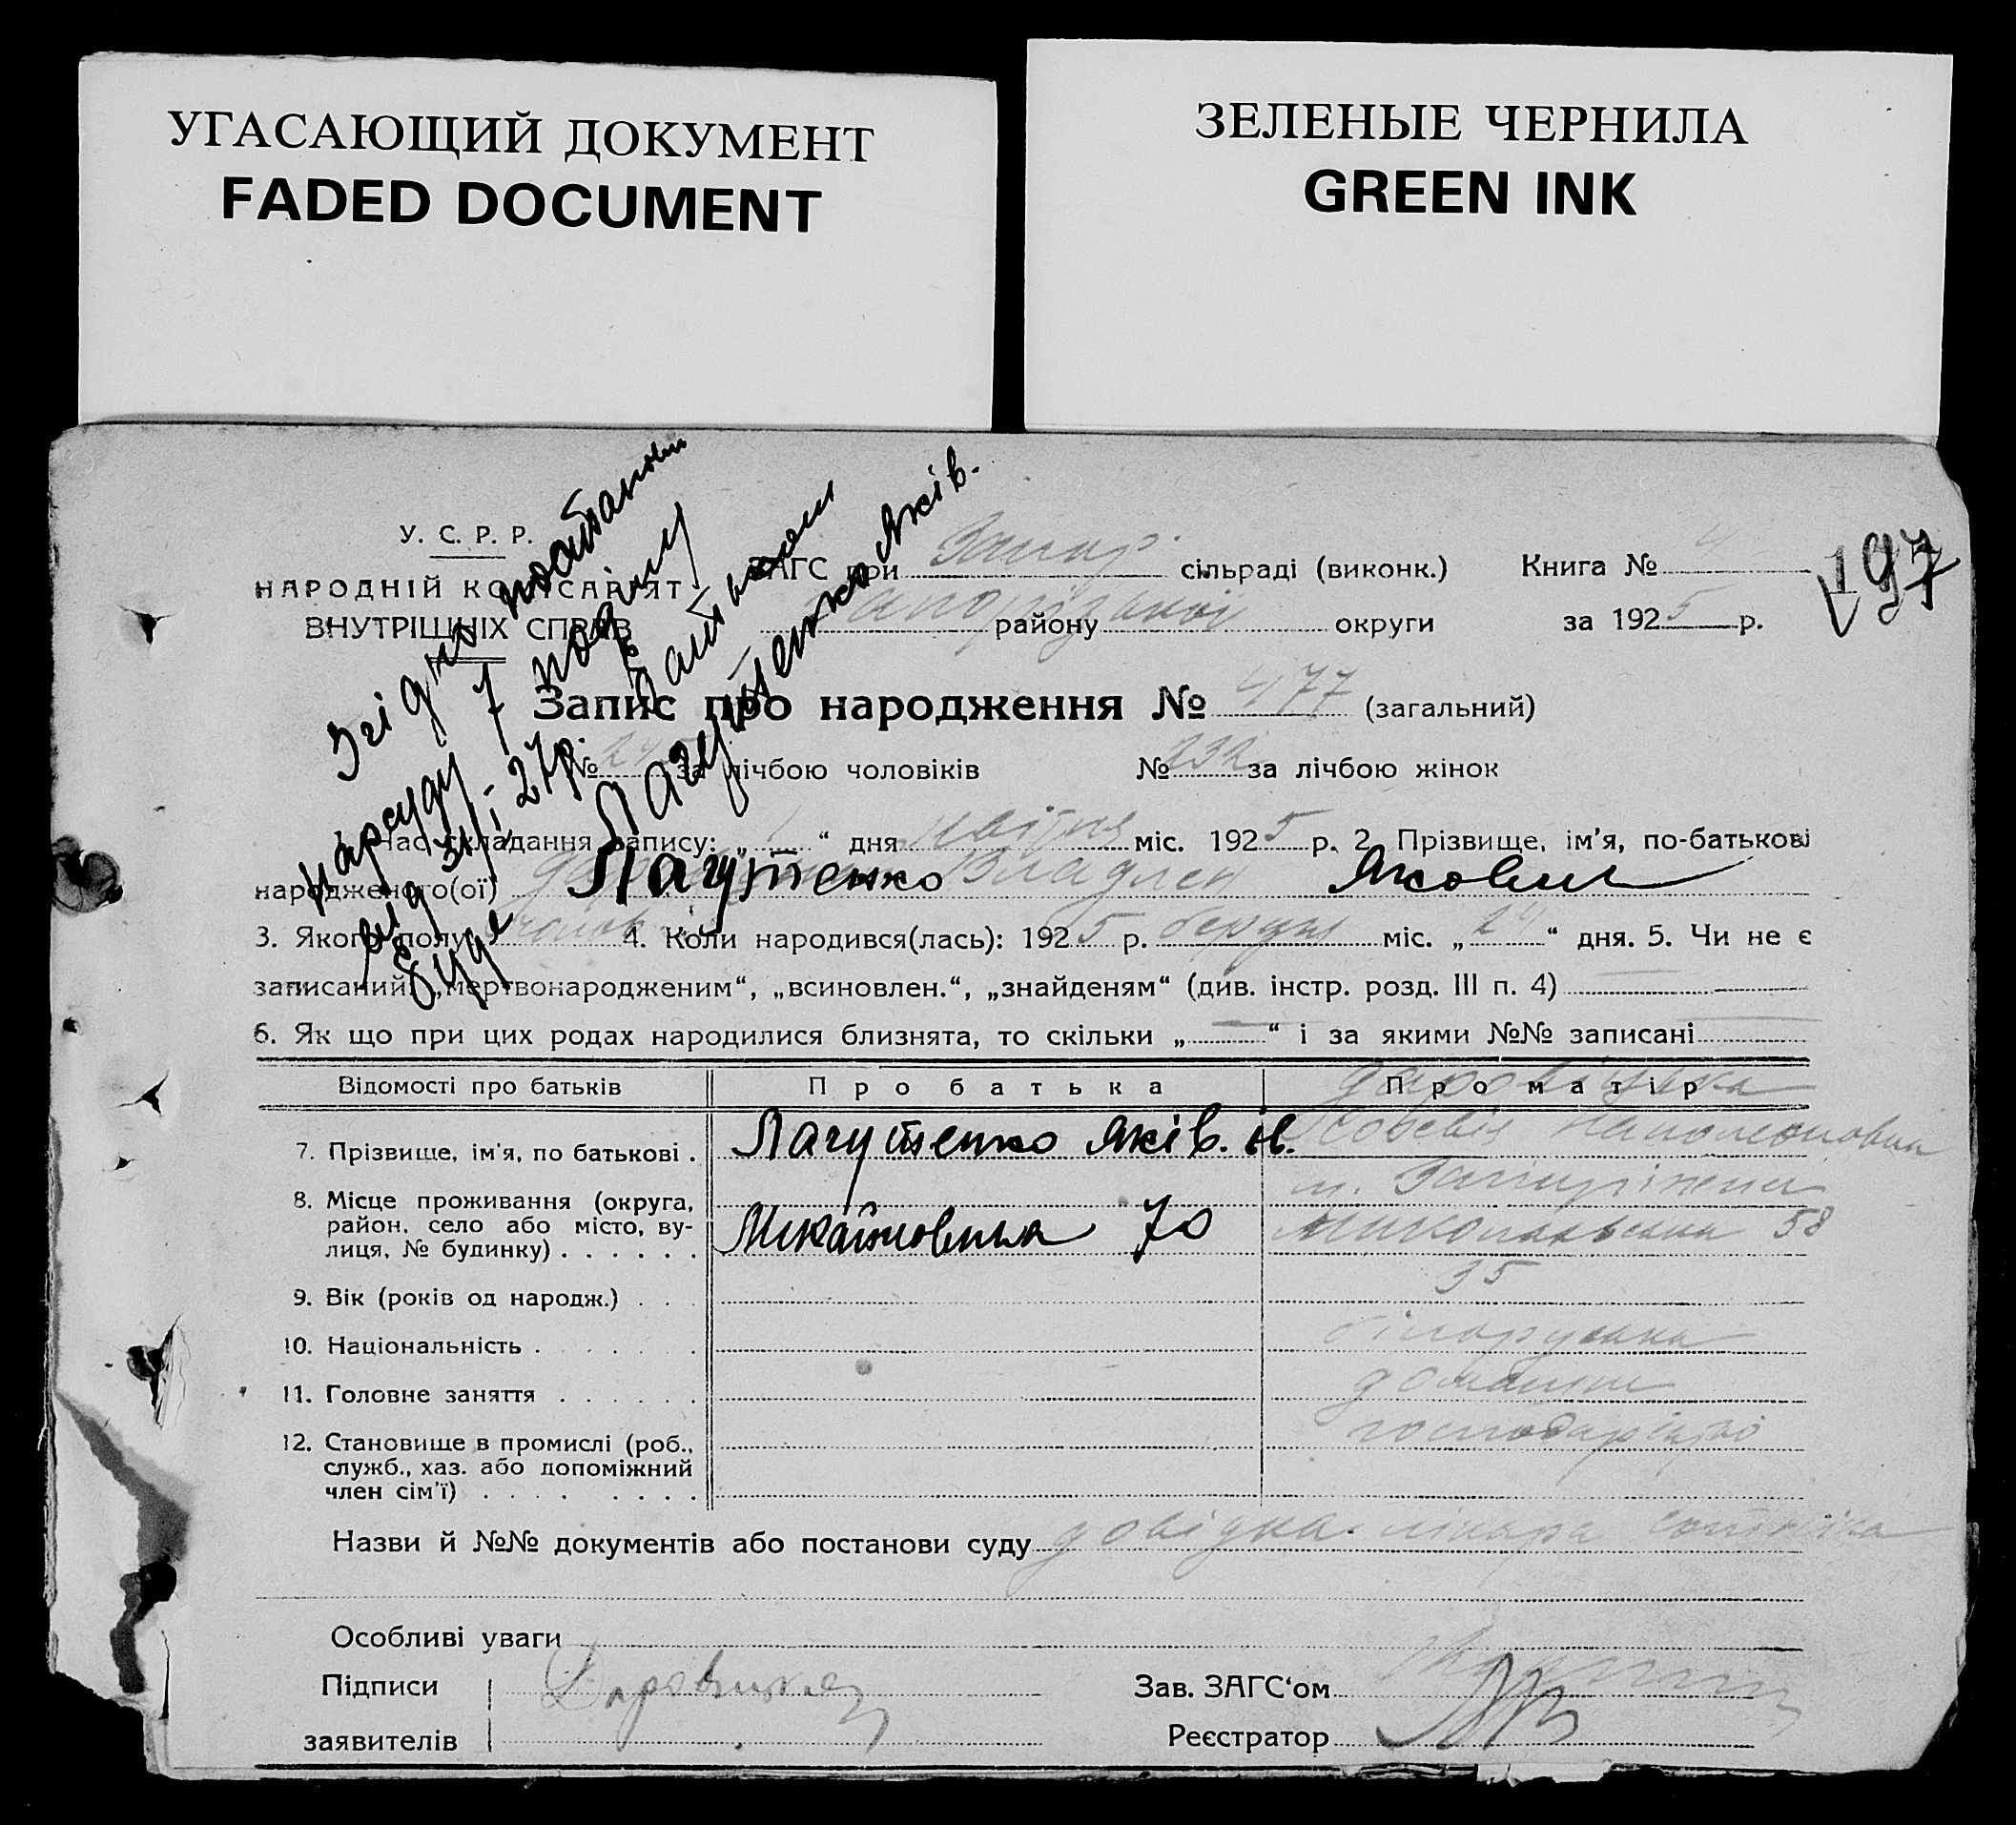 УГАСАЮЩИЙ ДОКУМЕНТ
FADED DOCUMENT
ЗЕЛЕНЫЕ ЧЕРНИЛА
GREEN INK
197
У. С. Р. Р.
НАРОДНІЙ КОМІСАРІЯТ
ВНУТРІШНІХ СПРАВ
Згідно постанови
нарсуду 7 поділу
від 31/І-27р. батьком
буде Лагутенко Яків.
ЗАГС при Запор. сільраді (виконк.) Книга № 4
району Запорізької округи за 1925 р.
Запис про народження № 477 (загальний)
№ 245 за лічбою чоловіків № 232 за лічбою жінок
Час складання запису: „ 1 “ дня квітня міс. 1925 р. 2. Прізвище, ім’я, по-батькові
народженого(ої) Лагутенко Владлен Якович
3. Якого полу чолов. 4. Коли народився(лась): 1925 р. березня міс. „ 24 “ дня. 5. Чи не є
записаний: „мертвонародженим“, „всиновлен.“, „знайденям“ (див. інстр. розд. III п. 4)
6. Як що при цих родах народилися близнята, то скільки „ “ і за якими №№ записані
Відомості про батьків Про батька Про матір
7. Прізвище, ім’я, по батькові . Лагутенко Яків. Ів. Наполеоновна
8. Місце проживання (округа, м. Запоріжжя
район, село або місто, ву- Михайловська 70 Миколаївська 58
лиця, № будинку) . . . . . .
9. Вік (років од народж.) . . . 35
10. Національність . . . . . . . білоруська
11. Головне заняття . . . . . . домашнє
12. Становище в промислі (роб., господарство
служб., хаз. або допоміжний
член сім’ї) . . . . . . . .
Назви й №№ документів або постанови суду довідка лікаря
Особливі уваги
Підписи Зав. ЗАГС‘ом
заявителів Реєстратор